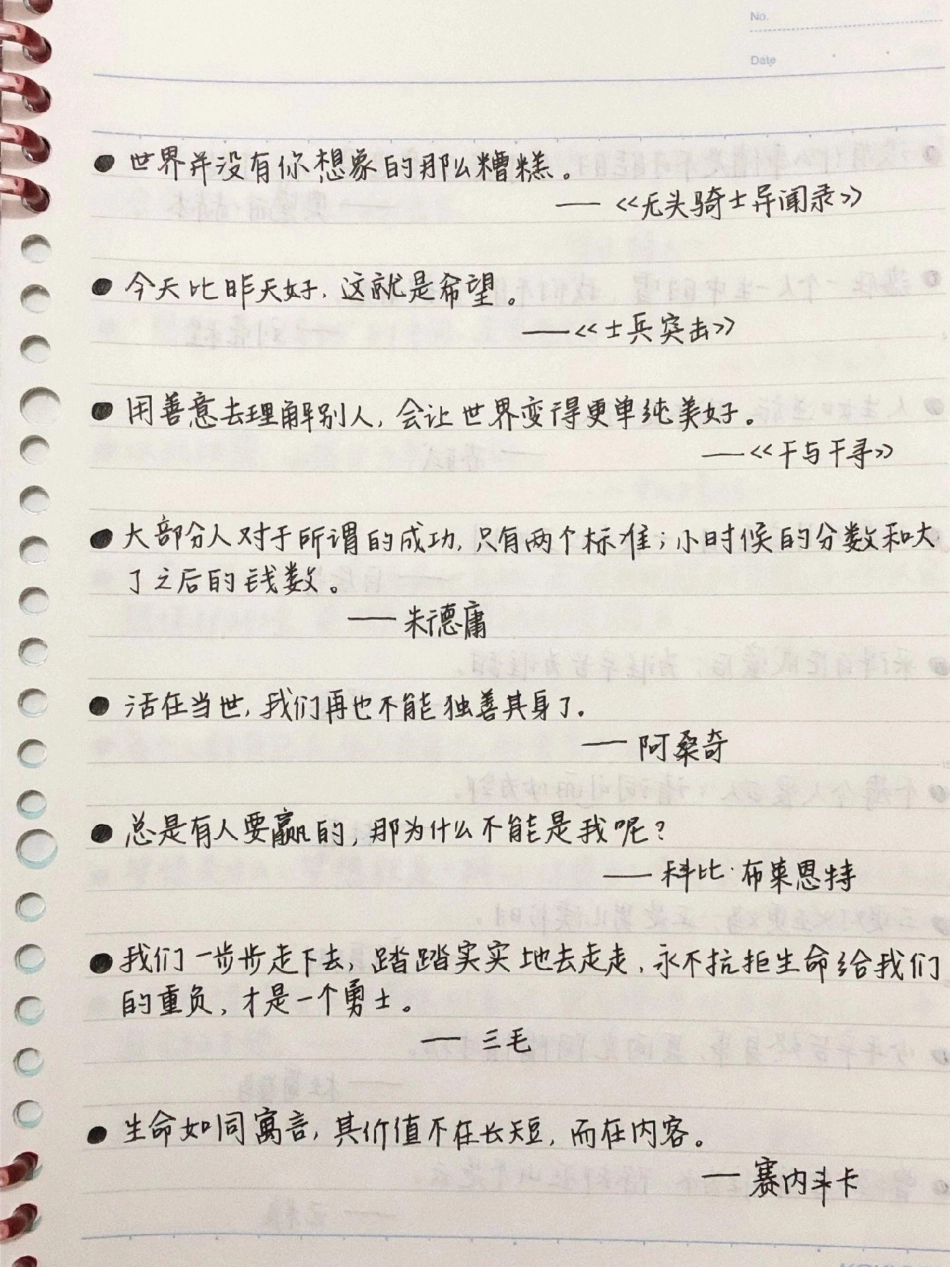 No.
Date
● 世界并没有你想象的那么糟糕。
——《无头骑士异闻录》
● 今天比昨天好，这就是希望。
——《士兵突击》
● 用善意去理解别人，会让世界变得更单纯美好。
——《千与千寻》
● 大部分人对于所谓的成功，只有两个标准；小时候的分数和大
了之后的钱数。
——朱德庸
● 活在当世，我们再也不能独善其身了.
——阿桑奇
● 总是有人要赢的，那为什么不能是我呢？
——科比·布莱恩特
● 我们一步步走下去，踏踏实实地去走走，永不抗拒生命给我们
的重负，才是一个勇士。
—— 三毛
● 生命如同寓言，其价值不在长短，而在内容。
—— 赛内斗卡